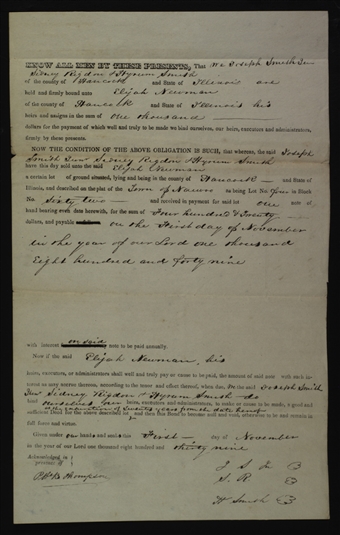 KNOW ALL MEN BY THESE PRESENTS, That We Joseph Smith Jun
Sidney Rigdon & Hyrum Smith
of the county of Hancock and State of Illinois are
held and firmly bound unto Elijah Newman
of the county of Hancock State of Illinois his
heirs and assigns in the sum of one thousand
dollars for the payment of which well and truly to be made we bind ourselves, our heirs, executors and administrators,
firmly by these presents.
NOW THE CONDITION OF THE ABOVE OBLIGATION IS SUCH, that whereas, the said Joseph
Smith Junr Sidney Rigdon & Hyrum Smith
have this day sold unto the said Elijah Newman
a certain lot of ground situated, lying and being in the county of Hancock and State of
Illinois, and described on the plat of the Town of Nauvoo as being Lot No. in Block
No. Sixty two and received in payment for said lot one note of
hand bearing even date herewith, for the sum of Four hundred & Twenty
dollars, and payable on the First day of November
in the year of our Lord one thousand
Eight hundred and forty nine
with interest on said note to be paid annually.
Now if the said Elijah Newman, his
heirs, executors, or administrators shall well and truly pay or cause to be paid, the amount of said note with such in-
terest as may accrue thereon, according to the tenor and effect thereof, when due. the said Joseph Smith
Junr Sidney Rigdon & Hyrum Smith do
bind ourselves our heirs, executors and administrators, to make or cause to be made, a good and
at the expiration of years from the date hereof
sufficient Deed for the above described lot and then this Bond to become null and void, otherwise to be and remain in
full force and virtue.
Given under our hands and seals this First day of November
in the year of our Lord one thousand eight hundred and thirty nine
Acknowledged in
presence of
J S Jr
S. R
Thompson
H Smith